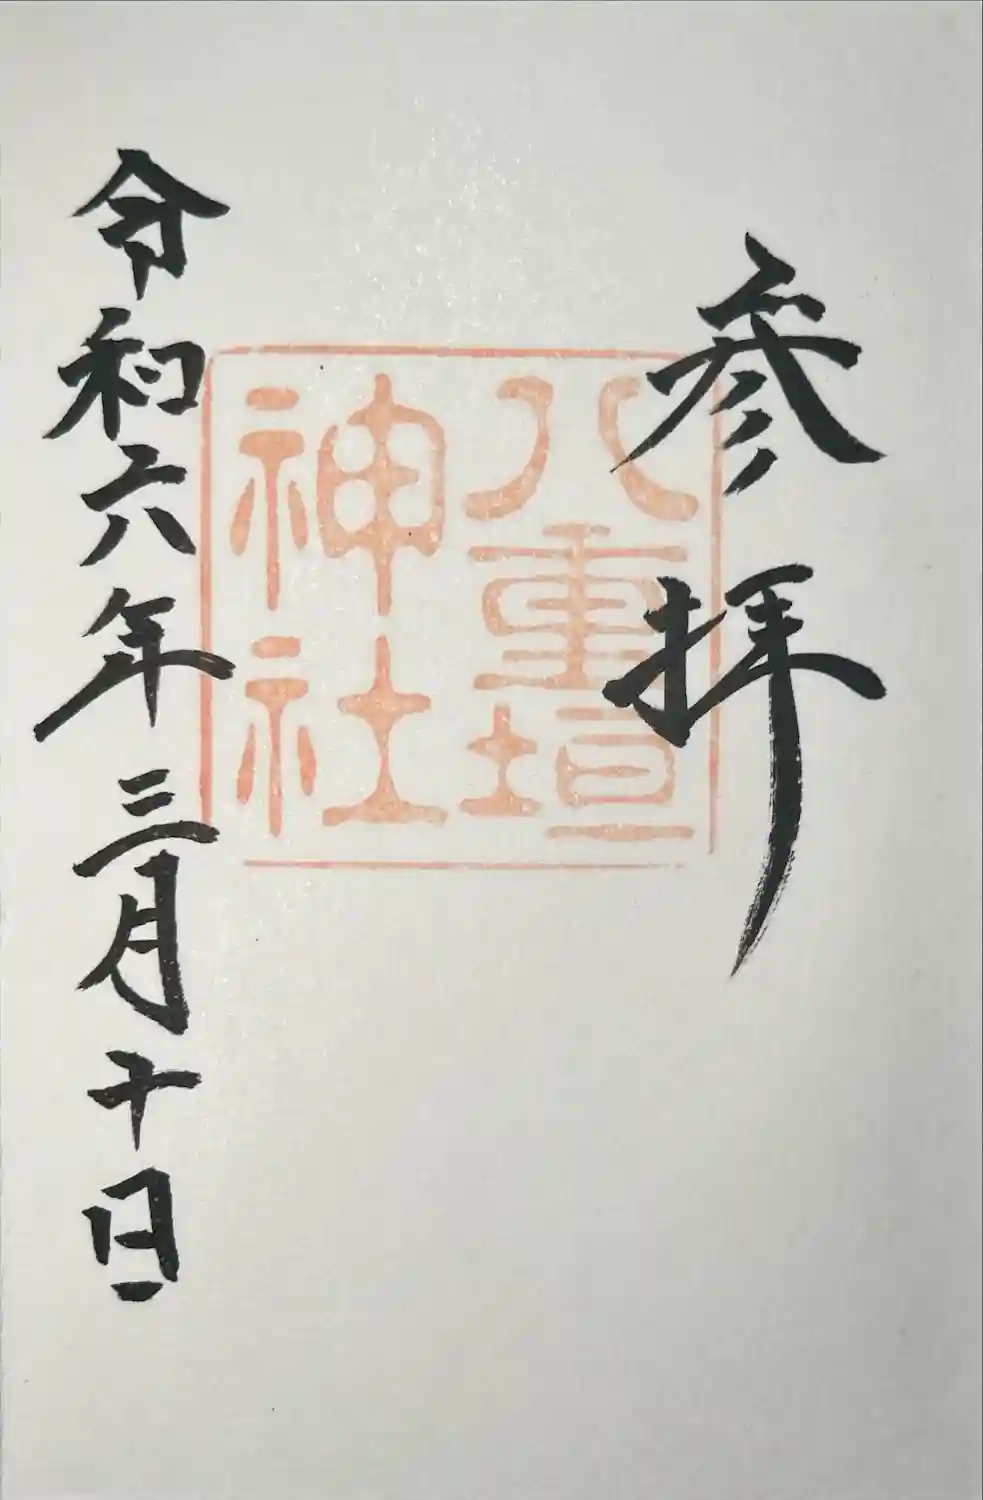 参拝
八重垣
神社
令和六年三月十日